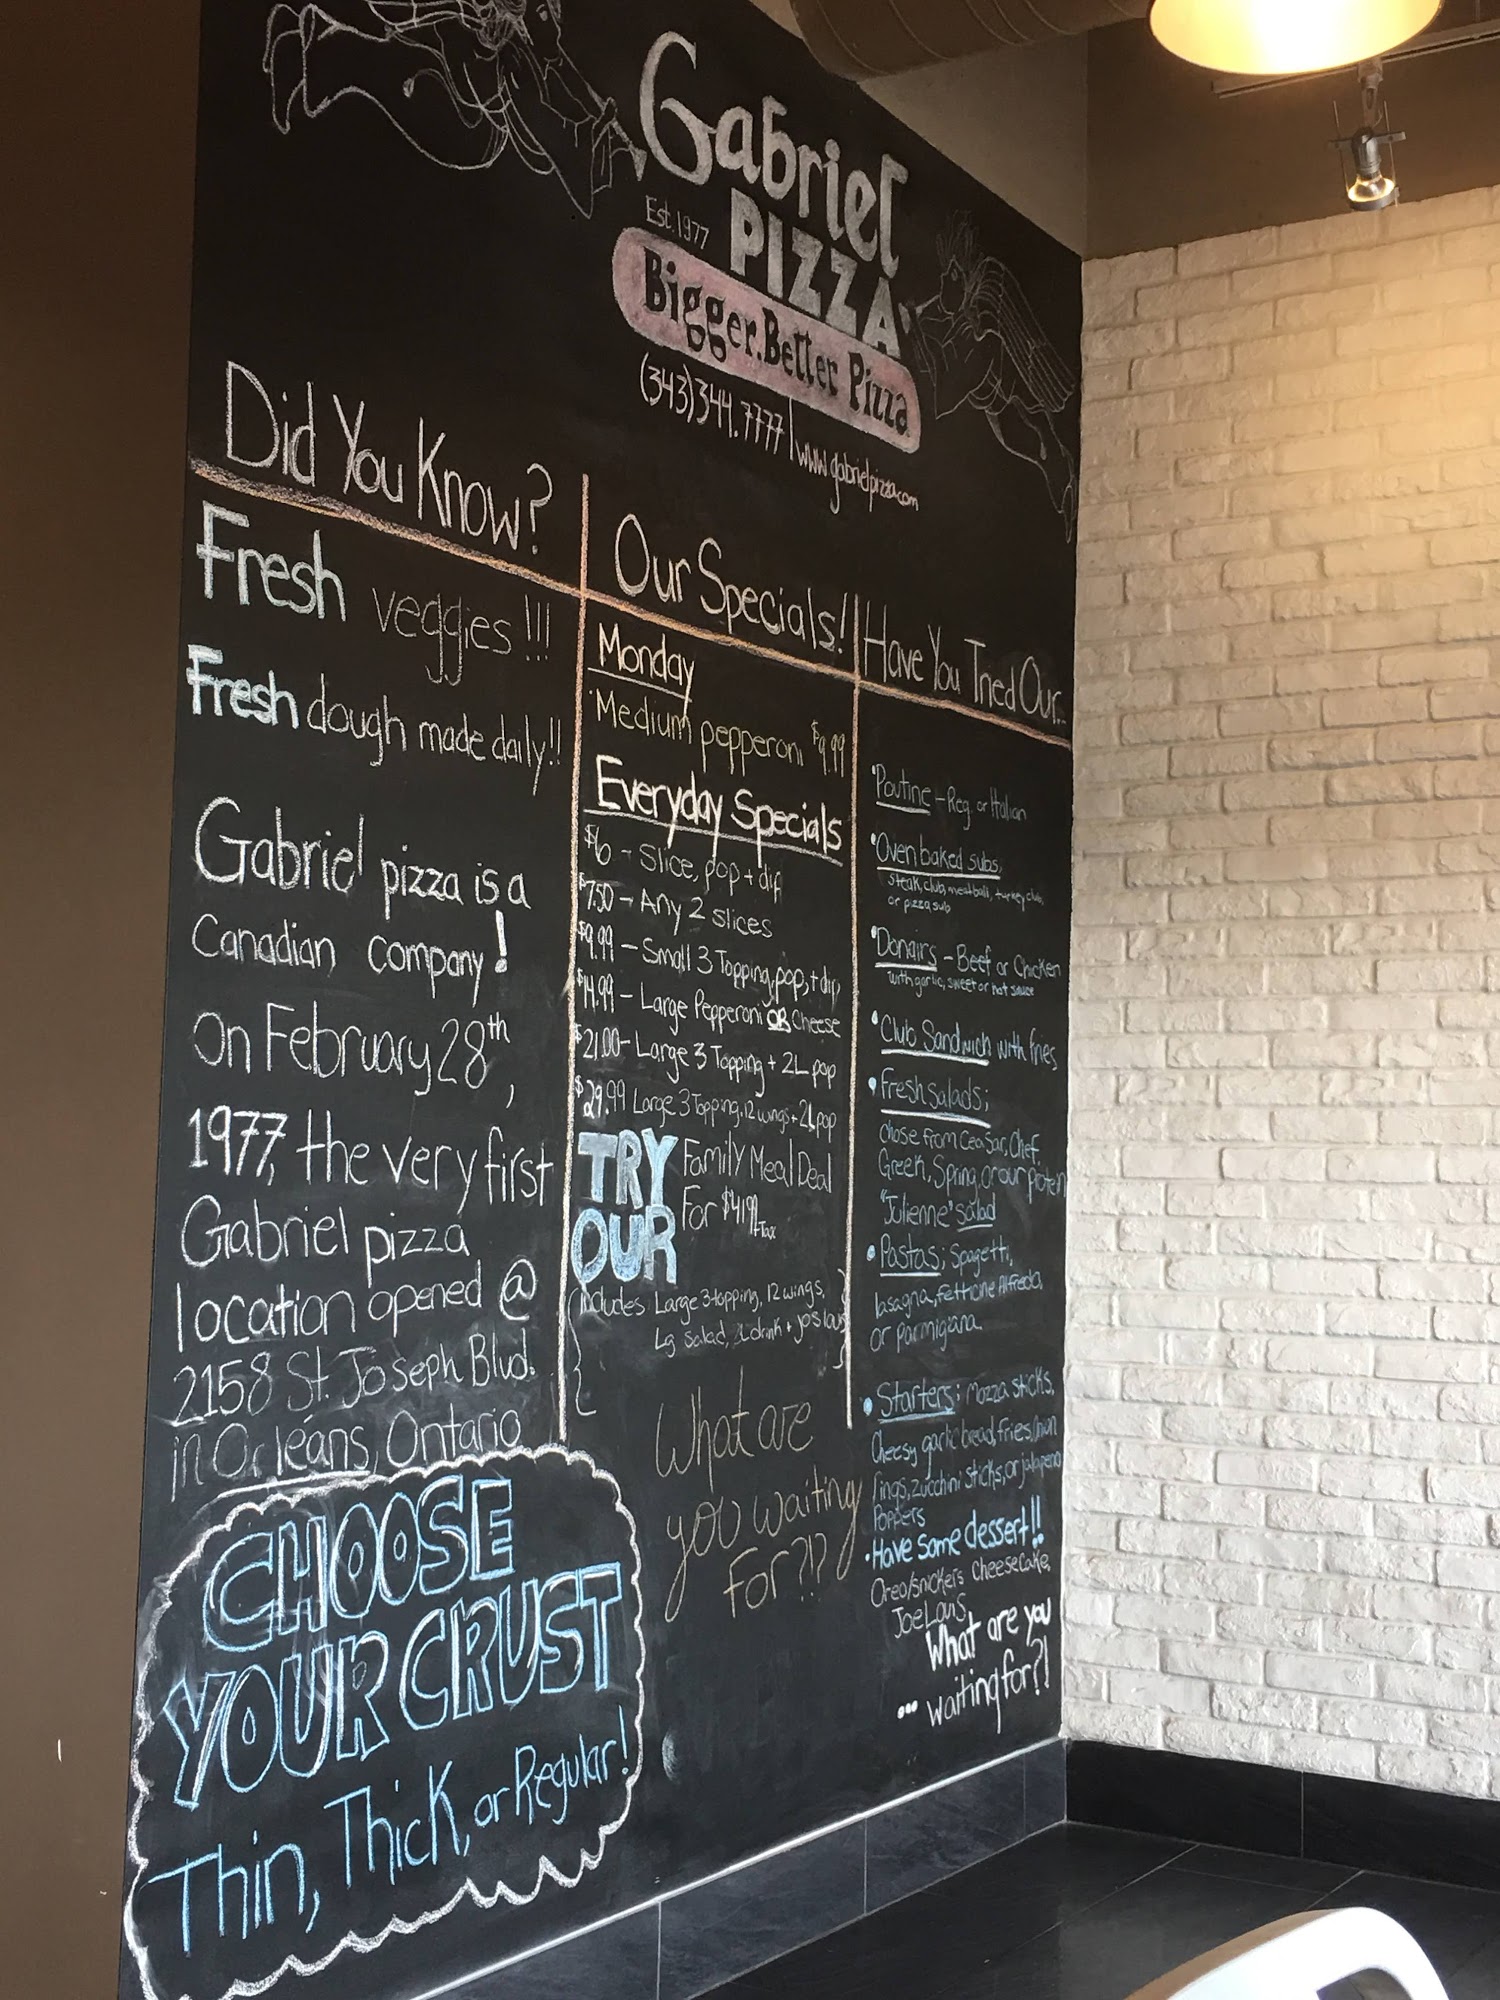 Gabriel
Est. 1977
PIZZA
Bigger. Better Pizza
(343)344.7777 | www.gabrielpizza.com
Did You Know?
Fresh veggies!!!
Fresh dough made daily!!
Gabriel pizza is a
Canadian company!
On February 28th,
1977, the very first
Gabriel pizza
location opened @
2158 St. Joseph Blvd.
in Orléans, Ontario
CHOOSE
YOUR CRUST
Thin, Thick, or Regular!
Our Specials!
Monday
·Medium pepperoni $9.99
Everyday Specials
$6 - Slice, pop + dip
$7.50 - Any 2 slices
$9.99 - Small 3 Topping, pop, + dip,
$14.99 - Large Pepperoni OR Cheese
$21.00 - Large 3 Topping + 2L pop
$29.99 Large 3 Topping, 12 wings + 2L pop
TRY
OUR
Family Meal Deal
For $41.99 +Tax
includes Large 3 topping, 12 wings,
Lg salad, 2L drink + jos louis
What are
you waiting
For?!?
Have You Tried Our..
•Poutine - Reg. or Italian
•Oven baked subs;
steak, club, meatball, turkey club,
or pizza sub
•Donairs - Beef or Chicken
with garlic, sweet or hot sauce
•Club Sandwich with fries
•Fresh Salads;
chose from Ceasar, Chef,
Greek, Spring, or our protein
"Julienne" salad
•Pastas; Spagetti,
lasagna, fetticine Alfredo,
or Parmigiana.
•Starters; Mozza sticks,
Cheesy garlic bread, fries, Onion
rings, zucchini sticks, or jalapeno
Poppers
•Have some dessert!!
Oreo/snickers Cheesecake,
Joe Louis
What are you
... waiting for?!